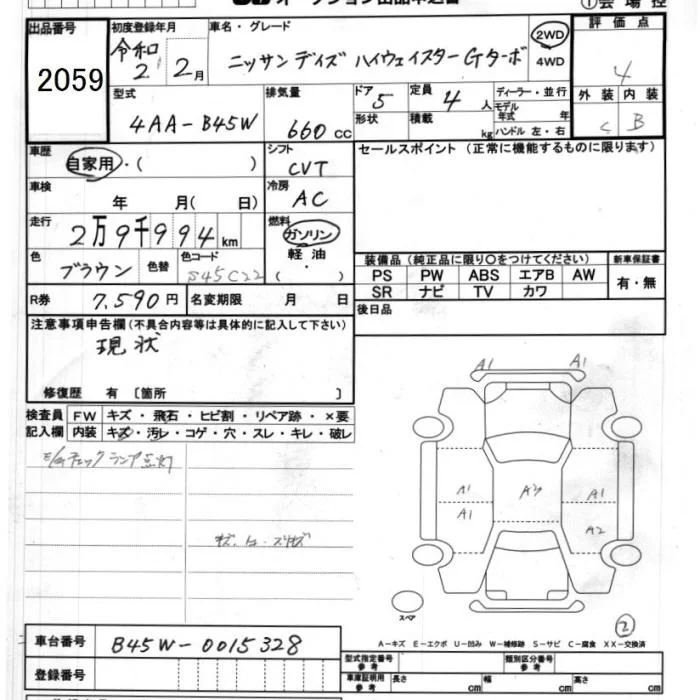 オークション出品申込書
①会場控
出品番号 2059
初度登録年月 令和2 2月
車名・グレード ニッサン デイズ ハイウェイスター Gターボ
2WD
4WD
評価点 4
外装 C 内装 B
型式 4AA-B45W
排気量 660 CC
ドア 5
形状
定員 4人
積載 kg
ディーラー・並行
モデル年式 年
ハンドル 左・右
車歴 自家用・( )
シフト CVT
セールスポイント (正常に機能するものに限ります)
車検 年 月( 日)
冷房 AC
走行 2万9千994km
燃料 ガソリン
軽油
・
( )
色 ブラウン 色替 色コード S45C22
装備品(純正品に限り○をつけてください) 新車保証書
PS PW ABS エアB AW 有・無
SR ナビ TV カワ
R券 7,590円 名変期限 月 日
後日品
注意事項申告欄(不具合内容等は具体的に記入して下さい)
現状
修復歴 有 〔箇所 〕
検査員記入欄 FW キズ・飛石・ヒビ割・リペア跡・×要
内装 キズ・汚レ・コゲ・穴・スレ・キレ・破レ
チェックランプ点灯
A1 A1
A1 A1
A1 A2
スペア
②
A-キズ E-エクボ U-凹み W-補修跡 S-サビ C-腐食 XX-交換済
車台番号 B45W-0015328
型式指定番号 参考 類別区分番号 参考
登録番号
車庫証明用 参考 長さ cm 幅 cm 高さ cm